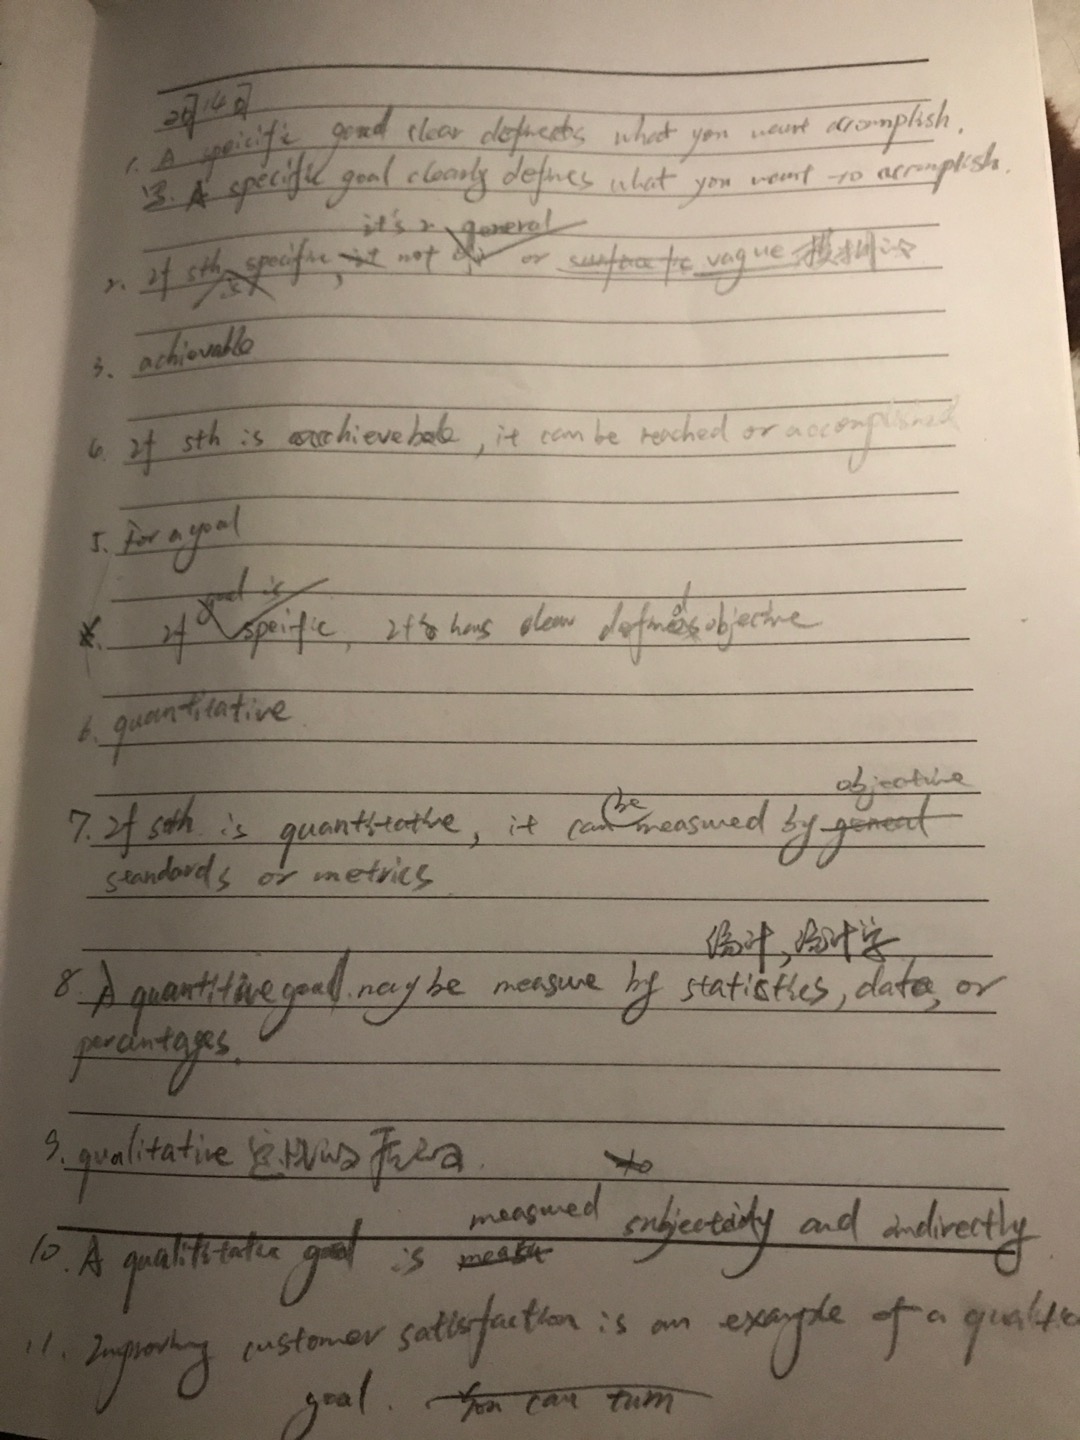 2月14日
1. A speicific goad clear defineds what you want accomplish.
3. A specific goal clearly defines what you want to accomplish.
it's general
2. If sth is specific, it not or surface vague
3. achievable
4. If sth is achievebele, it can be reached or accomplished
5. For a goal
goal is
If speific, It has clear defined objective
6. quantitative
objective
7. If sth is quantitative, it can be measured by general
standards or metrics
统计, 统计学
8. A quantitive goal may be measure by statistics, data, or
percentages.
9. qualitative
to
measured subjectivly and indirectly
10. A qualititative goal is measu
11. Improving customer satisfaction is an example of a
goal. You can turn